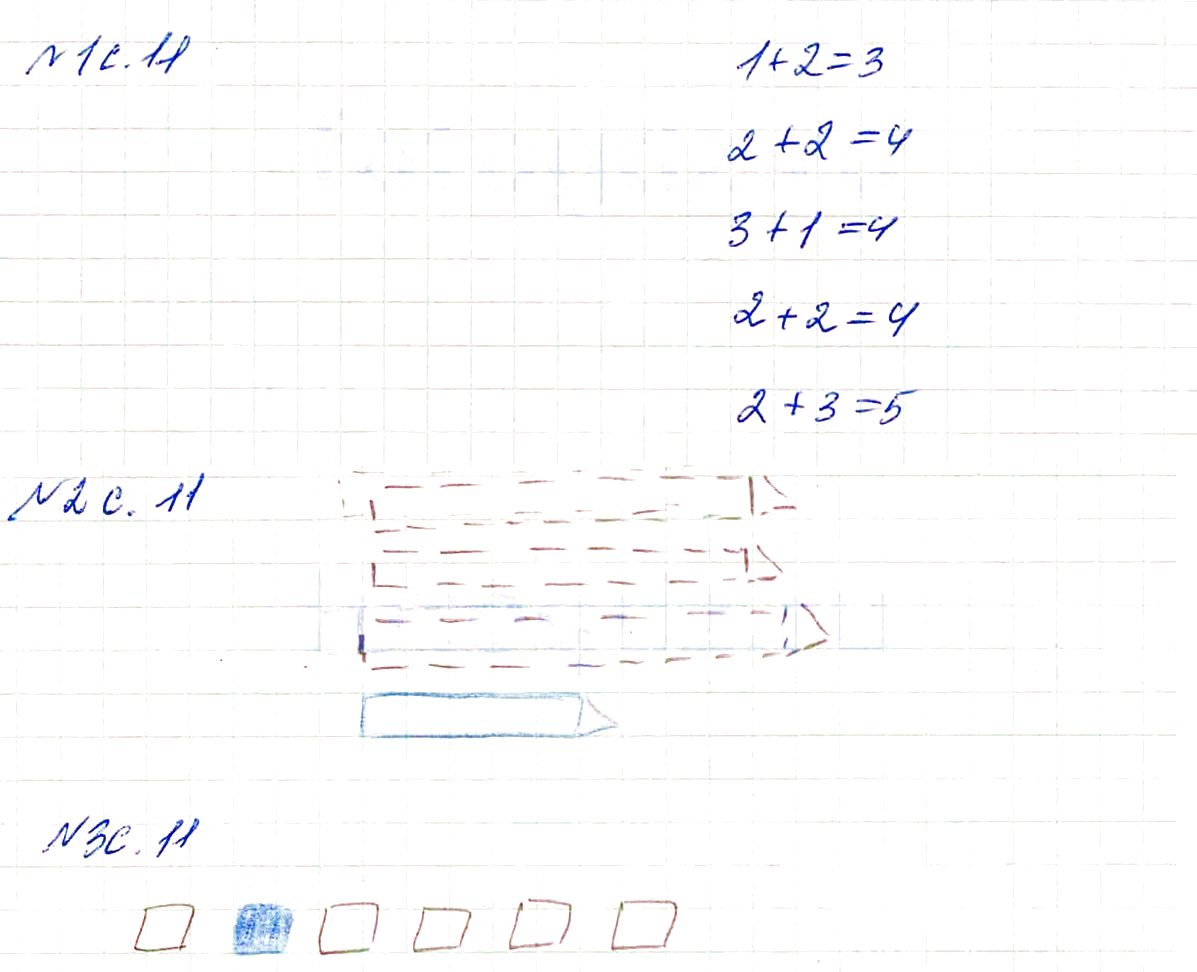 N1 с. 11
1+2=3
2+2=4
3+1=4
2+2=4
2+3=5
N2 с. 11
N3 с. 11